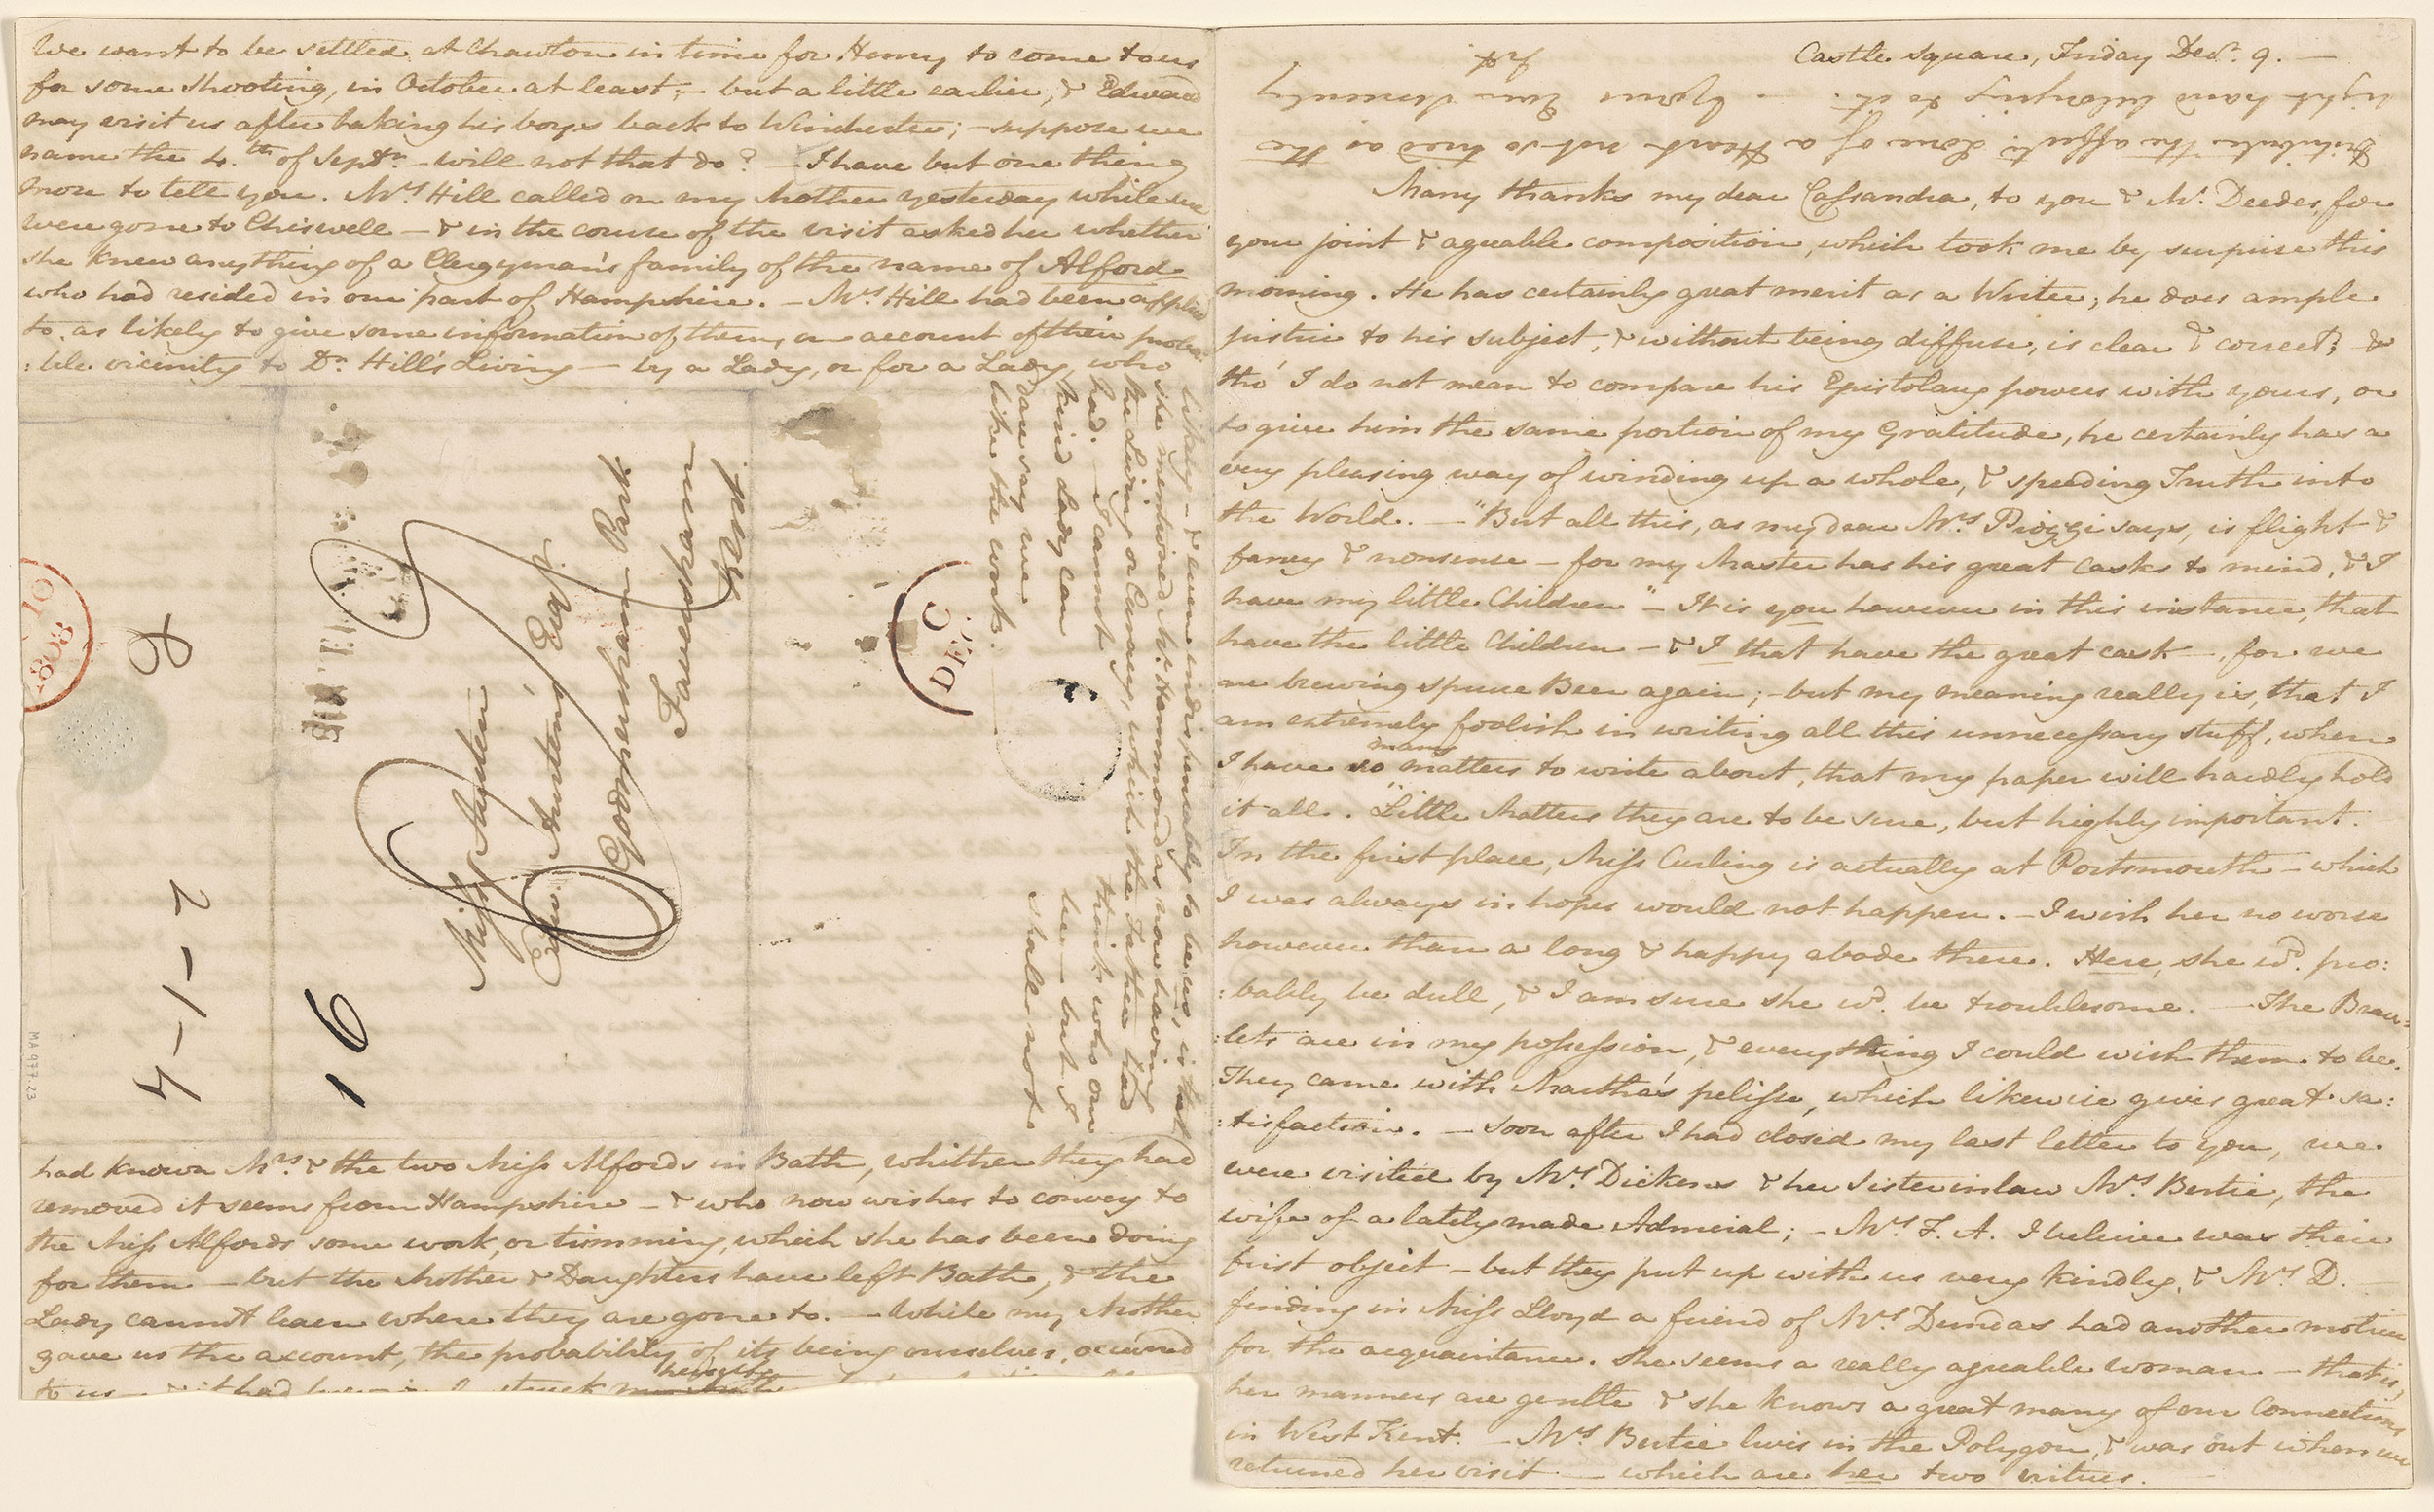 Castle Square, Friday Decr. 9. —
Many thanks my dear Cassandra, to you & Mr. Deedes, for
your joint & agreable composition, which took me by surprise this
morning. He has certainly great merit as a Writer, he does ample
justice to his subject, & without being diffuse, is clear & correct; – &
tho' I do not mean to compare his Epistolary powers with yours, or
to give him the same portion of my Gratitude, he certainly has a
very pleasing way of winding up a whole, & speeding Truth into
the World. — "But all this, as my dear Mrs. Piozzi says, is flight &
fancy & nonsense – for my Master has his great casks to mind, & I
have my little Children" – It is you however in this instance, that
have the little Children – & I that have the great cask –, for we
are brewing Spruce Beer again; – but my meaning really is, that I
am extremely foolish in writing all this unnecessary stuff, when
I have so many matters to write about, that my paper will hardly hold
it all. Little Matters they are to be sure, but highly important.
In the first place, Miss Curling is actually at Portsmouth – which
I was always in hopes would not happen. – I wish her no worse
however than a long & happy abode there. Here, she wd. pro:
:bably be dull, & I am sure she wd. be troublesome. — The Brace:
:lets are in my possession, & everything I could wish them to be.
They came with Martha's pelisse, which likewise gives great sa:
:tisfaction. — Soon after I had closed my last letter to you, we
were visited by Mrs. Dickens & her Sisterinlaw Mrs. Bertie, the
wife of a lately made Admiral; – Mrs. F. A. I beleive was their
first object – but they put up with us very kindly, & Mrs. D. —
finding in Miss Lloyd a friend of Mrs. Dundas had another motive
for the acquaintance. She seems a really agreable woman – that is,
her manners are gentle & she knows a great many of our Connections
in West Kent. – Mrs. Bertie lives in the Polygon, & was out when we
returned her visit — which are her two virtues.
We want to be settled at Chawton in time for Henry to come to us
for some Shooting, in October at least; – but a little earlier, & Edward
may visit us after taking his boys back to Winchester; – suppose we
name the 4.th of Septr. – will not that do? – I have but one thing
more to tell you. Mrs. Hill called on my Mother yesterday while we
were gone to Chiswell – & in the course of the visit asked her whether
she knew anything of a Clergyman's family of the name of Alford
who had resided in our part of Hampshire. – Mrs. Hill had been applied
to, as likely to give some information of them, on account of their proba:
:ble vicinity to Dr. Hill's Living – by a Lady, or for a Lady, who
had known Mrs. & the two Miss Alfords in Bath, whither they had
removed it seems from Hampshire – & who now wishes to convey to
the Miss Alfords some work, or trimming, which she has been doing
for them – but the Mother & Daughters have left Bath, & the
Lady cannot learn where they are gone to. – While my Mother
gave us the account, the probability of its being ourselves, occurred
to us – & it had herself
likely – & even indispensably to be us, is that
she mentioned Mr. Hammond as now having
the Living or Curacy, which the Father had
had. – I cannot think who our
kind Lady can be – but I
dare say we shall not
like the work.
Distribute the affecte. Love of a Heart not so tired as the
right hand belonging to it. – Yours Ever Sincerely
J.A.
Miss Austen
Edwd. Austen's Esqr.
Godmersham Park
Faversham
Kent
C
DEC
10
1808
8
4–1–2
16
MA 977.23